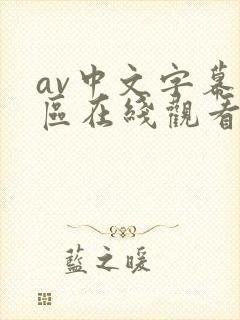 av中文字幕
區在綫觀看
藍之暖